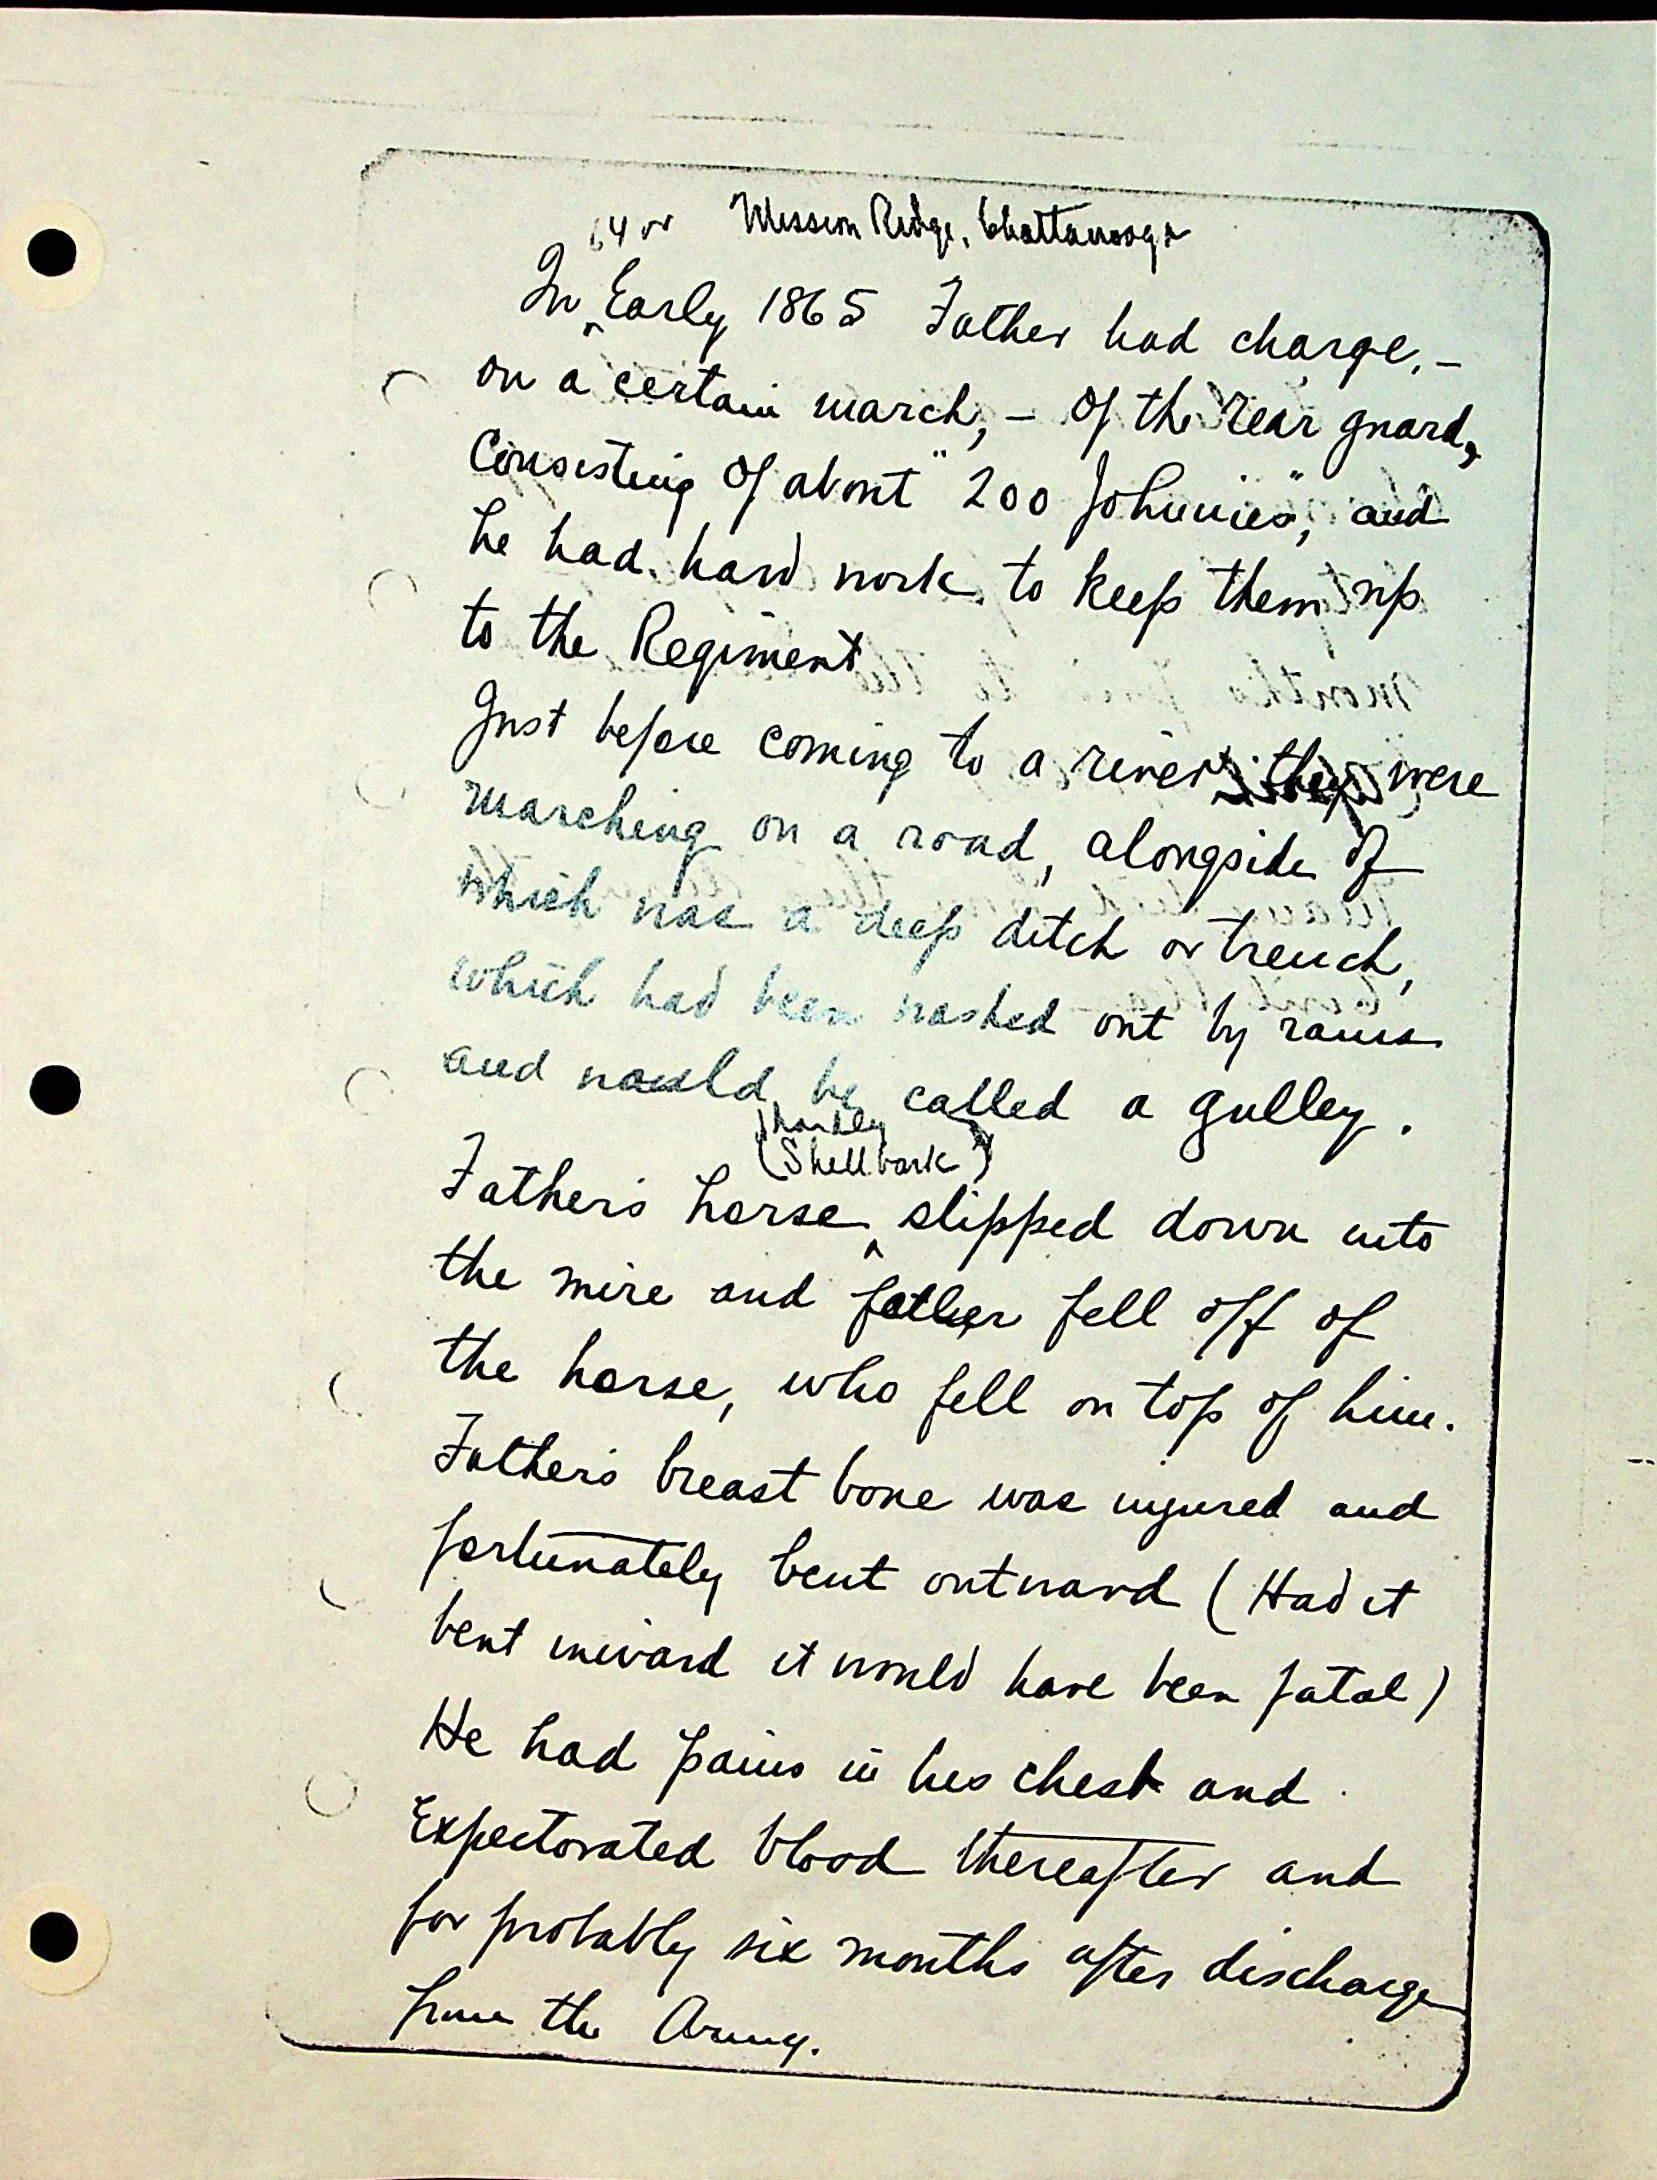 Mission Ridge, Chattanooga
64 or
In Early 1865 Father had charge, –
on a certain march, – of the rear guard,
Consisting of about "200 Johnnies", and
he had hard work to keep them up
to the Regiment
Just before coming to a river they were
marching on a road, alongside of
which was a deep ditch or trench,
which had been washed out by rains
and would be called a gulley.
(Shellbark)
Father's horse slipped down into
the mire and father fell off of
the horse, who fell on top of him.
Father's breast bone was injured and
fortunately bent outward (Had it
bent inward it would have been fatal)
He had pains in his chest and
Expectorated blood thereafter and
for probably six months after discharge
from the Army.